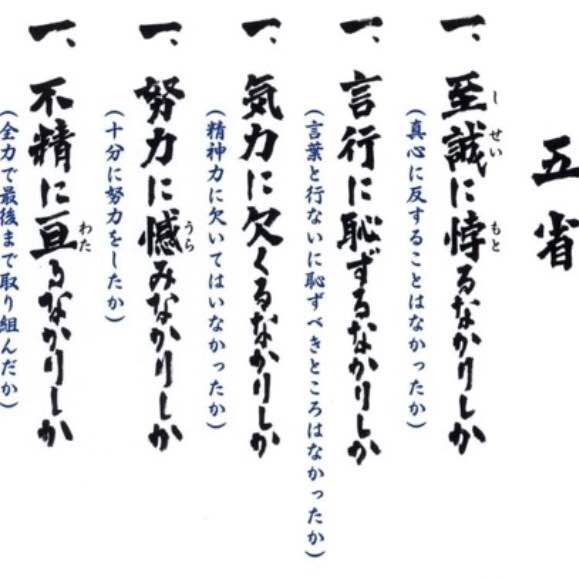 五省
しせい もと
一、至誠に悖るなかりしか
（真心に反することはなかったか）
一、言行に恥ずるなかりしか
（言葉と行ないに恥ずべきところはなかったか）
一、気力に欠くるなかりしか
（精神力に欠いてはいなかったか）
うら
一、努力に憾みなかりしか
（十分に努力をしたか）
わた
一、不精に亘るなかりしか
（全力で最後まで取り組んだか）